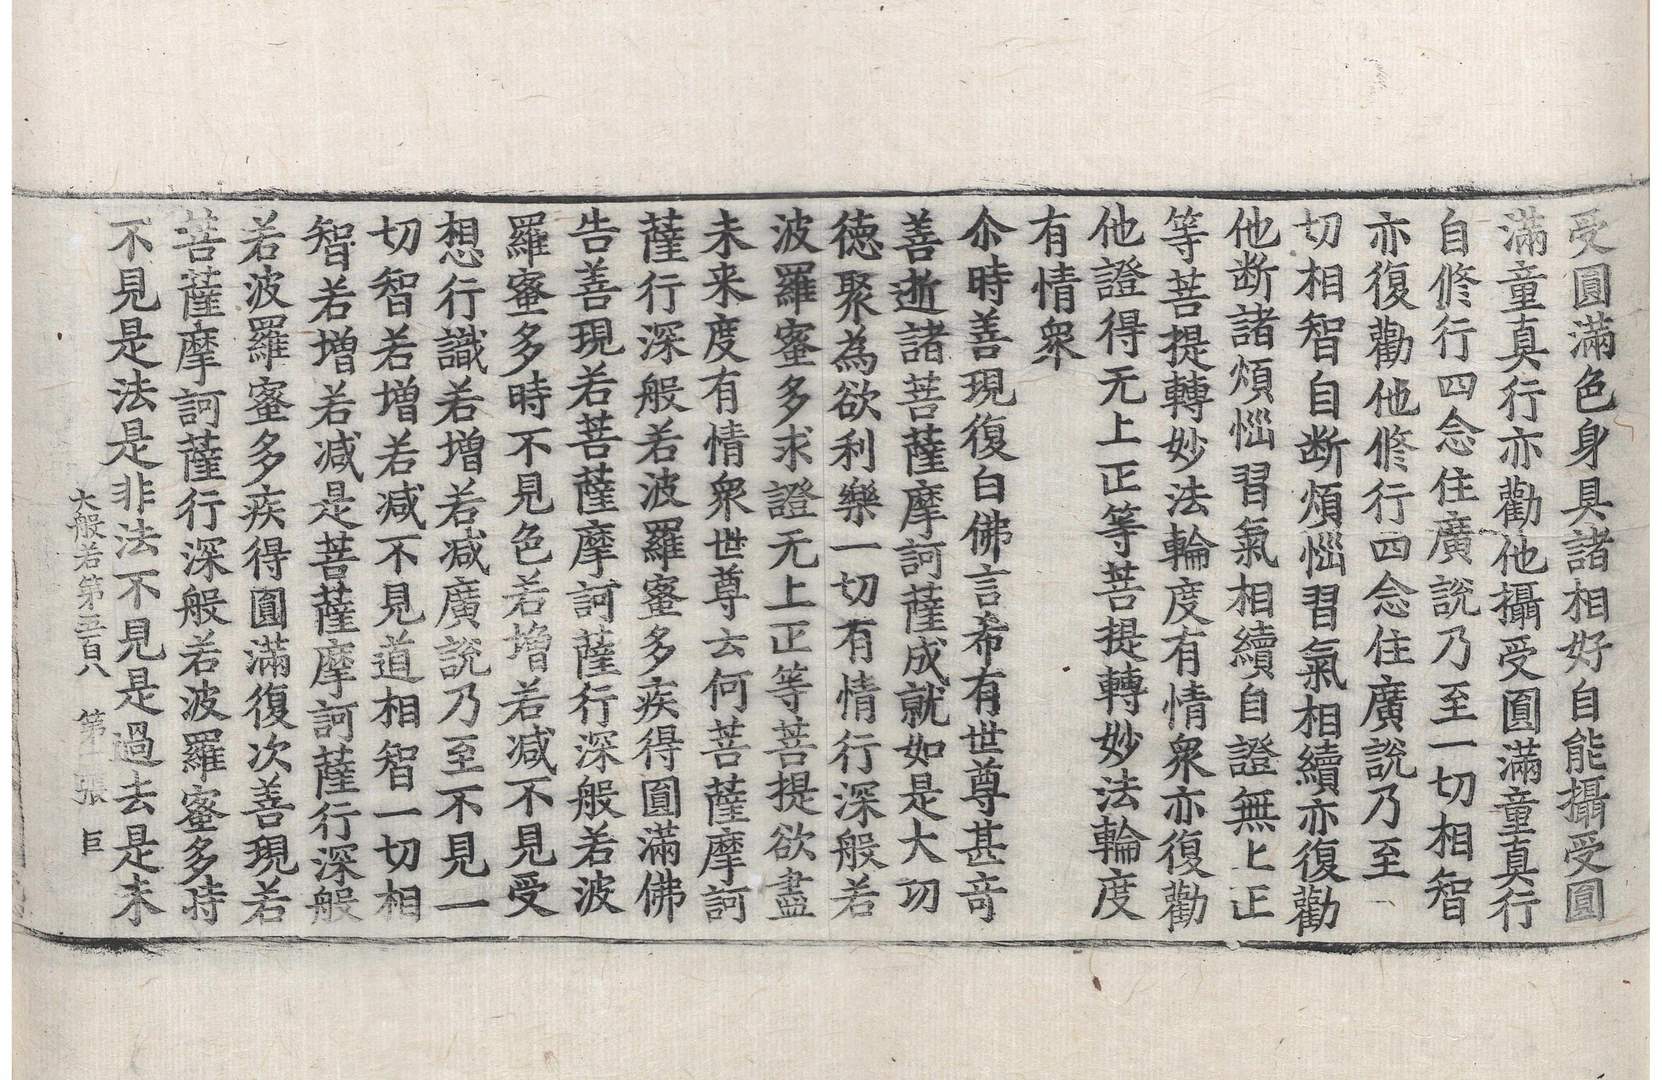 受圓滿色身具諸相好自能攝受圓
滿童真行亦勸他攝受圓滿童真行
自修行四念住廣說乃至一切相智
亦復勸他修行四念住廣說乃至一
切相智自断煩惱習氣相續亦復勸
他断諸煩惱習氣相續自證無上正
等菩提轉妙法輪度有情衆亦復勸
他證得无上正等菩提轉妙法輪度
有情衆
尒時善現復白佛言希有世尊甚竒
善逝諸菩薩摩訶薩成就如是大功
德聚為欲利樂一切有情行深般若
波羅蜜多求證无上正等菩提欲盡
未来度有情衆世尊云何菩薩摩訶
薩行深般若波羅蜜多疾得圓滿佛
告善現若菩薩摩訶薩行深般若波
羅蜜多時不見色若增若减不見受
想行識若增若减廣說乃至不見一
切智若增若减不見道相智一切相
智若增若减是菩薩摩訶薩行深般
若波羅蜜多疾得圓滿復次善現若
菩薩摩訶薩行深般若波羅蜜多時
不見是法是非法不見是過去是未
大般若第五百八 第 張 巨